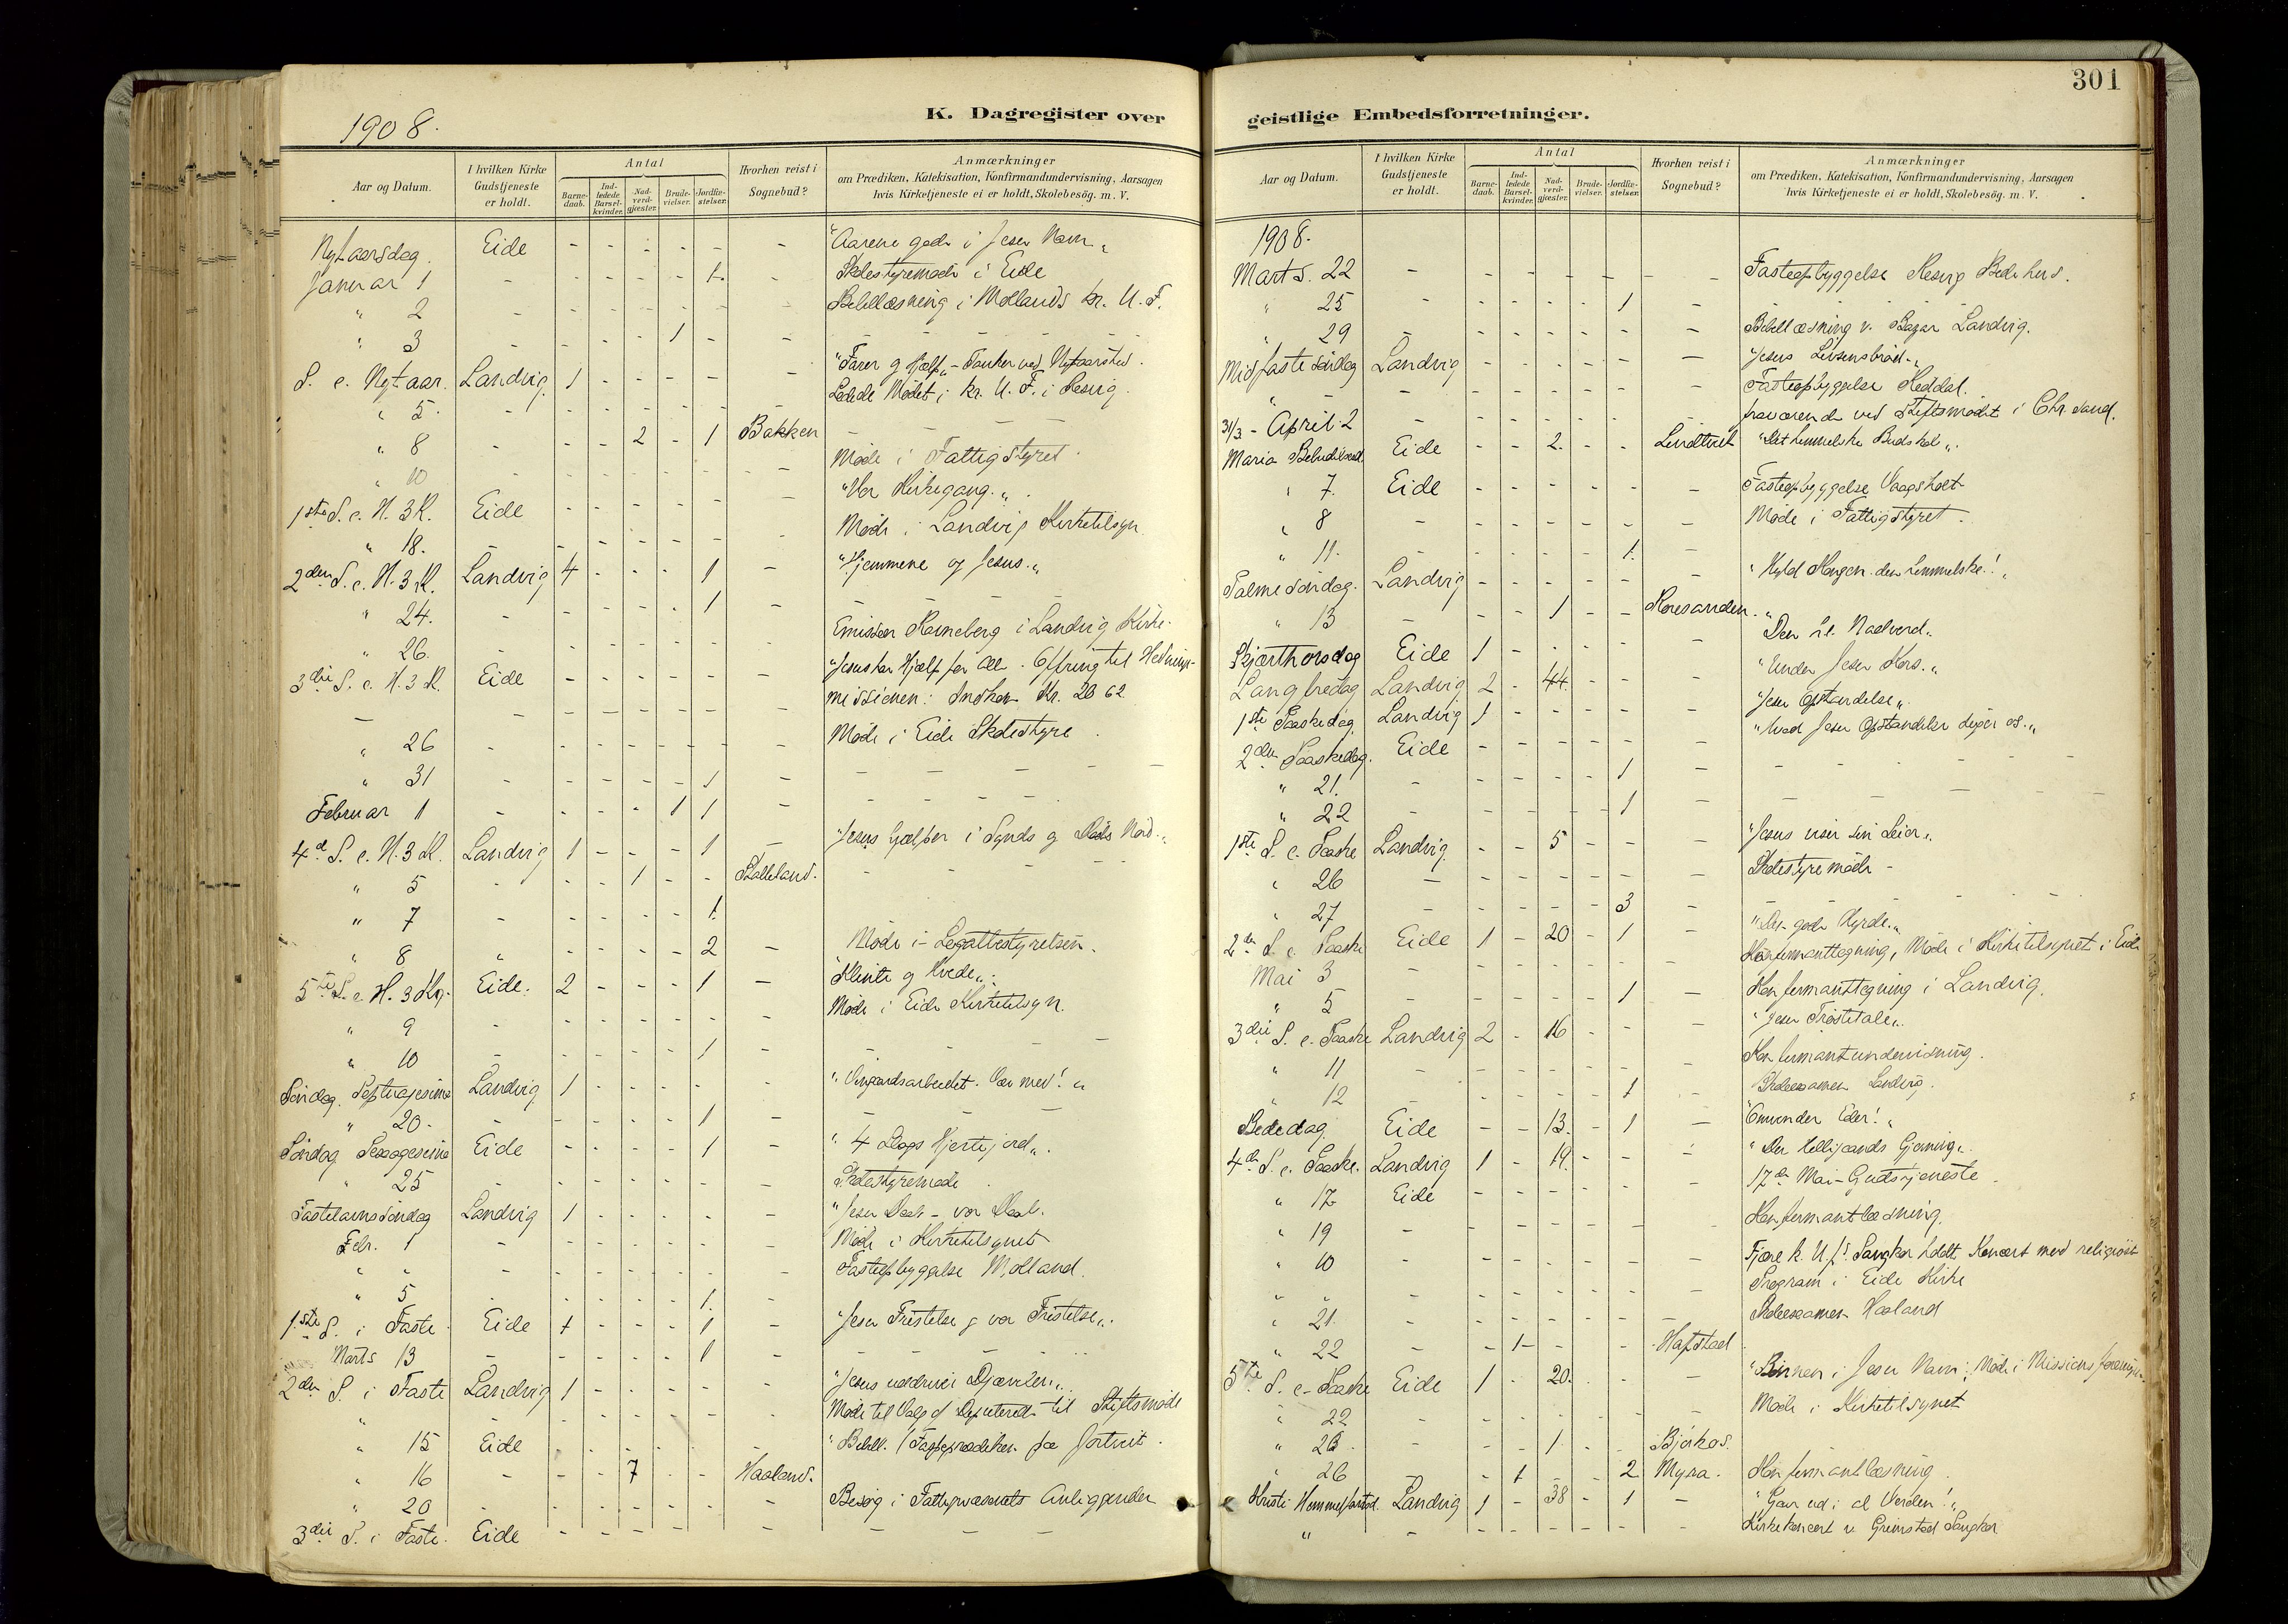 301
K. Dagregister over geistlige Embedsforretninger.
1908.
Aar og Datum.
I hvilken Kirke Gudstjeneste er holdt.
Antal
Barne-daab.
Ind-ledede Barsel-kvinder.
Nad-verd-gjæster.
Brude-vielser.
Jordfæ-stelser.
Hvorhen reist i Sognebud?
Anmærkninger
om Prædiken, Katekisation, Konfirmandundervisning, Aarsagen
hvis Kirketjeneste ei er holdt, Skolebesög. m. V.
Nytaarsdag. Eide - - - - - - "Aarene gode i Jesu Navn"
Januar 1 - - - - - 1. - Skolestyremøde i Eide
" 2 - - - - - - - Bibellæsning i Mollands kr. U. F.
" 3 - - - - 1 - -
S. e. Nytaar. Landvig 1 - - - - -
" 5. - - - - - - - Ledede Mødet i kr. U. F. i Resvig.
" 8 - - - 2 - 1 Bakken
" 10 - - - - - - - Møde i Fattigstyret.
1ste S. e. H. 3 K. Eide - - - - - - "Vor Kirkegang."
" 18. - - - - - - - Møde i Landvig Kirketilsyn
2den S. e. H. 3 K. Landvig 4 - - - 1 - "Hjemmene og Jesus."
" 24. - - - - - 1 -
" 26. - - - - - - - Emissær Ranneberg i Landvig Kirke.
3die S. e. H. 3 K. Eide - - - - - - "Jesus har Hjælp for Alle. Offring til Hednings-
missionen: Indkom Kr. 20 62
" 26 - - - - - - - Møde i Eide Skolestyre.
" 31 - - - - - 1 -
Februar 1 - - - - 1 1 -
4d S. e. H. 3 K. Landvig 1 - - - 1 - "Jesus hjælper i Synds og Døds Nød."
" 5 - - - 1 - - Skalleland.
" 7 - - - - - 1.
" 8 - - - - - 2 - Møde i Legatbestyrelsen.
5te S. e. H. 3 Kg. Eide. 2 - - - 1 - "Klinte og Hvede".
" 9 - - - - - - - Møde i Eide Kirketilsyn.
" 10 - - - - - 1 -
Söndag Septuagesima Landvig 1 - - - - - "Vingaardsarbeidet. Vær med!"
" 20. - - - - - 1 -
Söndag Sexagesima Eide - - - - 1 - "4 Slags Hjertejord".
" 25 - - - - - - - Skolestyremøde
Fastelavnssöndag Landvig 1 - - - - - "Jesu Daab - vor Daab.
Febr. 1 - - - - - - - Møde i Kirketilsynet
" " - - - - - - - Fasteopbyggelse Molland.
" 5 - - - - - 1. -
1ste S. i Faste Eide 1 - - - 1 - "Jesu Fristelse og vor Fristelse".
Marts 13 - - - - - 1 -
2den S. i Faste Landvig 1 - - - - - "Jesus uddriver Djævlen"
Møde til Valg af Deputerede til Stiftsmøde
" 15 Eide - - - - - -
" 16 - - - 7 - - Haaland.
" 20 - - - - - - - Besøg i Fattigvæsenets Anliggender
3die S. i Faste. Eide - - - - - -
Aar og Datum.
I hvilken Kirke Gudstjeneste er holdt.
Antal
Barne-daab.
Ind-ledede Barsel-kvinder.
Nad-verd-gjæster.
Brude-vielser.
Jordfæ-stelser.
Hvorhen reist i Sognebud?
Anmærkninger
om Prædiken, Katekisation, Konfirmandundervisning, Aarsagen
hvis Kirketjeneste ei er holdt, Skolebesög. m. V.
1908.
Marts. 22 - - - - - - - Fasteopbyggelse Resvig Bedehus.
" 25 - - - - - 1
" 29 - - - - - - - Bibellæsning v. Bazar Landvig.
Midfastesöndag Landvig - - - - - - "Jesus Livsens brød."
" - - - - - - - Fasteopbyggelse Reddal.
31/3 - April 2 - fraværende ved Stiftsmødet i Chr.sand.
Maria Bebudelsesd. Eide - - 2. - - Lindtveit "Det himmelske Budskab".
" 7. Eide - - - - - - Fasteopbyggelse Vaagsholt
" 8 - - - - - - - Møde i Fattigstyret.
" 11. - - - - - 1. -
Palmesöndag. Landvig - - - - - - "Hyld Kongen den himmelske!"
" 13 - - - 1 - - Roresanden.
Skjærthorsdag Eide 1 - - - - - "Den hl. Nadverd.
Langfredag Landvig 2 - 44. - - - "Under Jesu Kors."
1ste Paaskedag. Landvig 1 - - - - - "Jesu Opstandelse".
2den Paaskedag. Eide - - - - - - "Hvad Jesu Opstandelse siger os."
" 21. - - - - - 1 -
" 22 - - - - - 1 -
1ste S. e. Paaske Landvig. - - 5 - - - "Jesus viser sin Seier".
" 26 - - - - - - - Skolestyremøde -
" 27 - - - - - 3 -
2den S. e. Paaske Eide 1 - 20 - 1 - "Den gode Hyrde."
Mai 3 - - - - - - - Konfirmanttegning, Møde i Kirketilsynet i Eide
" 5 - - - - - 1 - Konfirmanttegning i Landvig.
3die S. e. Paaske Landvig 2 - 16 - - - "Jesu Trøstetale".
" 11 - - - - - - - Konfirmantundervisning.
" 12 - - - - - 1 - Skoleexamen Landvig.
Bededag. Eide - - 13. - 1 - "Omvender Eder!"
4de S. e. Paaske. Landvig 1 - 19. - - - "Den Helligaands Gjerning".
" 17 Eide - - - - - - 17de Mai-Gudstjeneste
" 19 - - - - - - - Konfirmantlæsning.
" 10 - - - - - - - Fjære k. U. f.s Sangkor holdt Koncert med religiøst
" " Program i Eide Kirke
" 21. - - - - - - - Skoleexamen Haaland
" 22 - - 1 - - - Hafstad
5te S. e. Paaske Eide 1 - 20. - - - "Bønnen i Jesu Navn". Møde i Missionsforeningen
" 22 - - - - - - - Møde i Kirketilsynet
" 23. - - - 1. - - Bjorkos.
" 26 - - 1 - - 2 Myra. Konfirmantlæsning.
Kristi Himmelfartsd. Landvig 1 - 38 - 1 - "Gaar ud i al Verden!"
" - - - - - - - Kirkekoncert v. Grimstad Sangkor